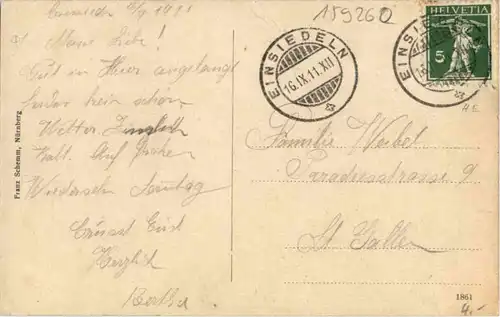 159260
Einsiedeln 16/9 1911
Meine Liebe!
Gut in Hier angelangt
leider kein schön
Wetter. Ziemlich
kalt. Auf frohes
Wiedersehn Sonntag
Grüsst Euch
Herzlich
Bertha
Franz Schemm, Nürnberg
EINSIEDELN
16.IX.11.XII
EINSIEDELN
HELVETIA
5
Familie Weibel
Paradiesstrasse 9
St Gallen
1861
4.-